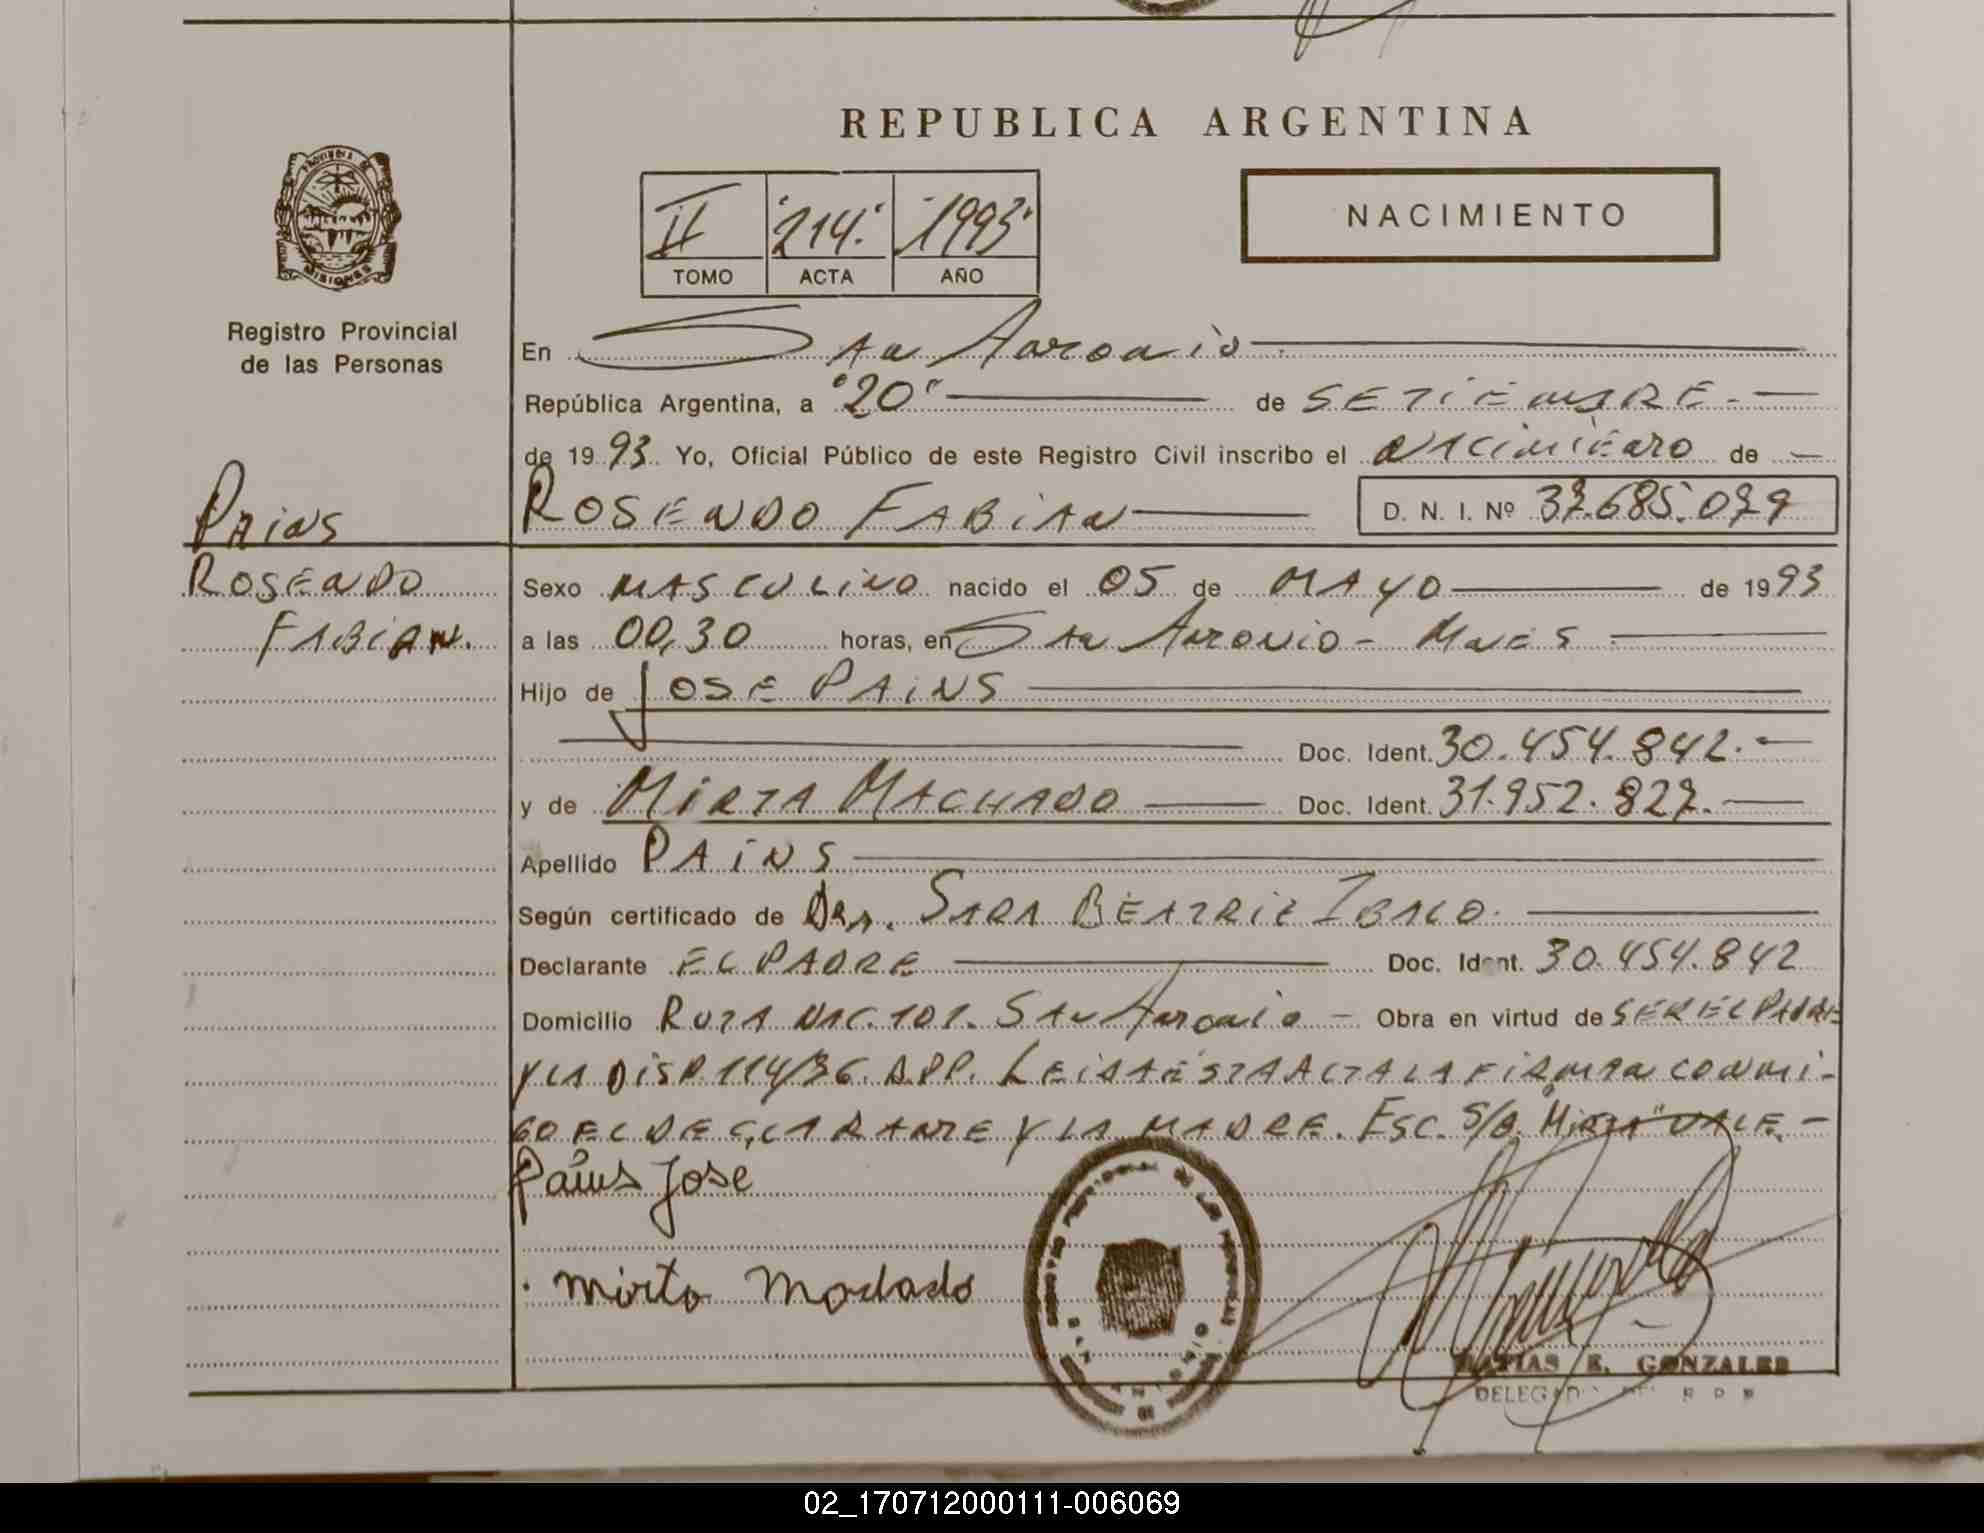 REPUBLICA ARGENTINA
PROVINCIA DE MISIONES
Registro Provincial
de las Personas
II "214" "1993"
TOMO ACTA AÑO
NACIMIENTO
En San Antonio
República Argentina, a "20" de SETIEMBRE.
de 1993. Yo, Oficial Público de este Registro Civil inscribo el NACIMIENTO de
ROSENDO FABIAN D. N. I. Nº 37.685.079
PAINS
ROSENDO
FABIAN.
Sexo MASCULINO nacido el 05 de MAYO de 1993
a las 00,30 horas, en San Antonio - Mnes
Hijo de JOSE PAINS
Doc. Ident. 30.454.842.
y de MIRTA MACHADO Doc. Ident. 31.952.827.
Apellido PAINS
Según certificado de Dra. SARA BEATRIZ
Declarante EL PADRE Doc. Ident. 30.454.842
Domicilio RUTA NAC. 101. San Antonio - Obra en virtud de SER EL PADRE
Y LA DISP. 114/36. D.P.P. LEIDA ESTA ACTA LA FIRMAN CONMI-
GO EL DECLARANTE Y LA MADRE. ESC. S/B. "MIRTA" VALE.-
Pains Jose
Mirta Machado
MATIAS E. GONZALEZ
DELEGADO DEL R P P
02_170712000111-006069